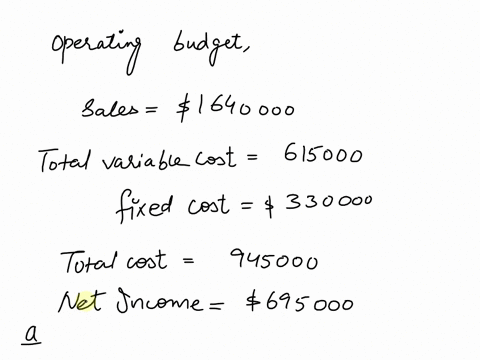 Operating budget,
Sales = $1640000
Total variable cost = 615000
fixed cost = $330000
Total cost = 945000
Net Income = $695000
a